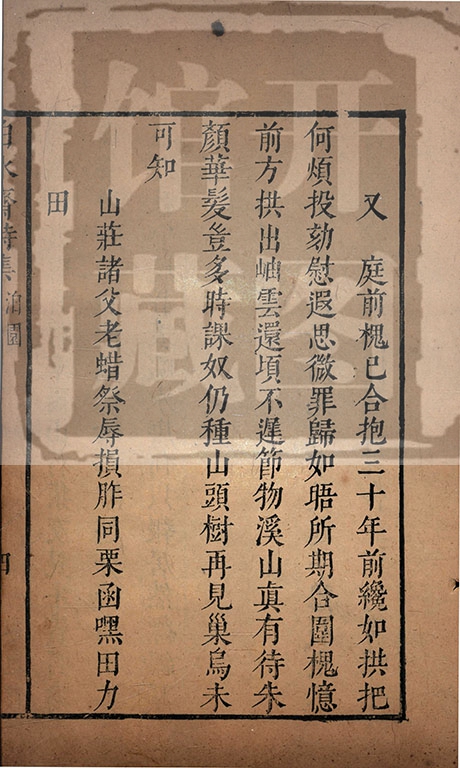 又　庭前槐已合抱三十年前纔如拱把
何煩投劾慰遐思微罪歸如晤所期合圍槐憶
前方拱出岫雲還頃不遲節物溪山真有待朱
顏華髮豈多時課奴仍種山頭樹再見巢烏未
可知
山莊諸父老蜡祭辱損胙同栗函嘿田力
田
白水齋詩集　泊園
四
开图馆藏